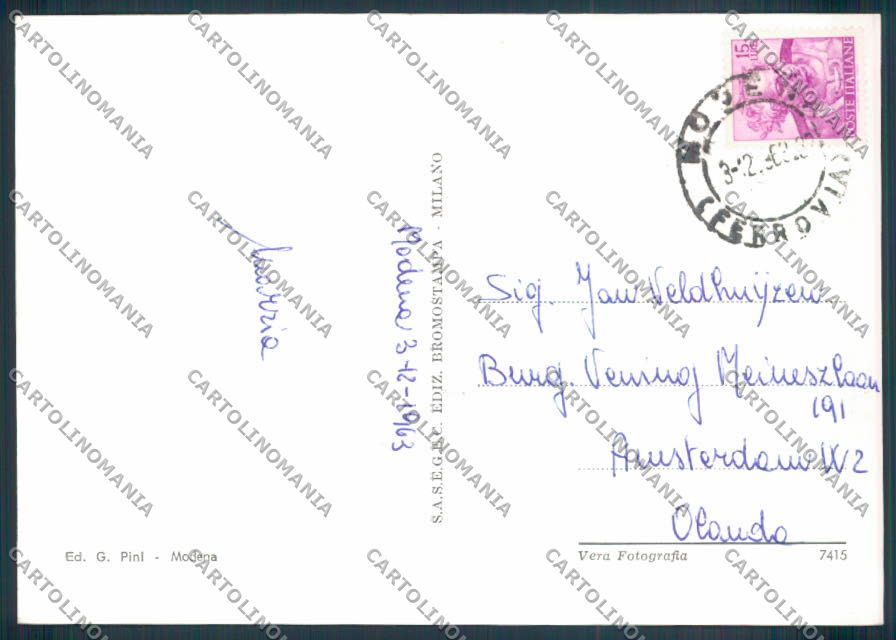 Marzia
Modena 3-12-1963
S.A.S.E.G.E.C. EDIZ. BROMOSTAMPA - MILANO
15
POSTE ITALIANE
MODENA
3-12.
(FERROVIA)
Sig. Jan Veldhuijzen
Burg. Vening Meineszlaan
191
Amsterdam W2
Olanda
Ed. G. Pini - Modena
Vera Fotografia
7415
CARTOLINOMANIA